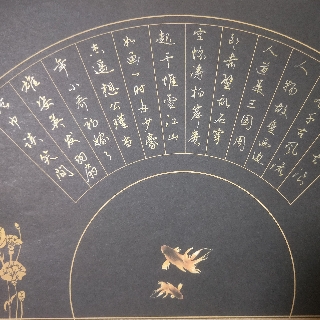 人物故垒西边
人道是三国周
郎赤壁乱石穿
空惊涛拍岸卷
起千堆雪江山
如画一时多少豪
杰遥想公瑾当
年小乔初嫁了
雄姿英发羽扇
巾谈笑间